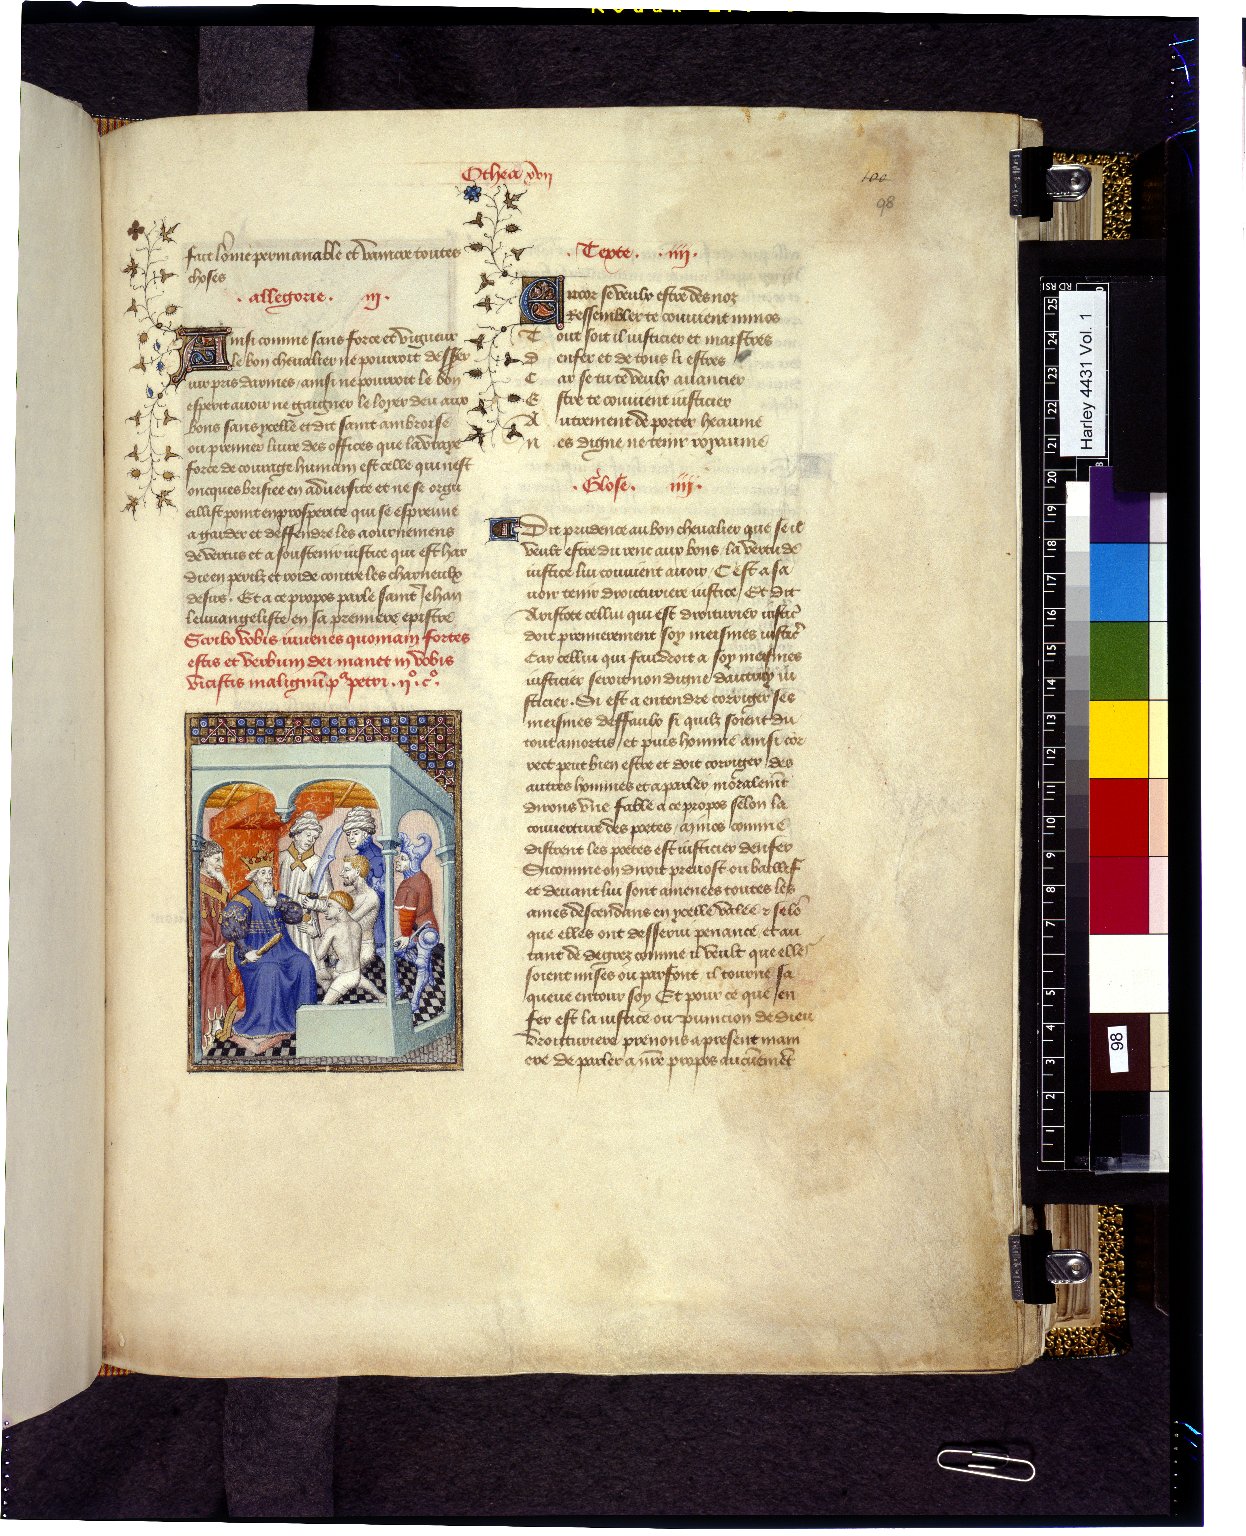 Othea xvii
98
fait lome permanable et vaincre toutes
choses
. allegorie . iij .
Ainsi comme sans force et vigueur
le bon chevalier ne pourroit desser
uir pris darmes / ainsi ne pourroit le bon
esperit auoir ne gaigner le loyer deu aux
bons sans ycelle et dit saint ambroise
ou premier liure des offices que la vraye
force de courage humain est celle qui nest
oncques brisiee en aduersite et ne se orgu
eillist point en prosperite qui se espreuue
a garder et deffendre les aournemens
de vertus et a soustenir iustice qui est har
die en perilz et roide contre les charneulx
desirs . Et a ce propos parle saint Jehan
leuuangeliste en sa premiere epistre
Scribo vobis iuuenes quoniam fortes
estis et verbum dei manet in vobis
vicistis malignum
. Texte . . iiij .
Encor se veulx estre des noz
Ressembler te couuient minos
Tout soit il iusticier et maistres
Denfer et de tous li estres
Car se tu te veulx auancier
Estre te couuient iusticier
Autrement de porter heaume
Nes digne ne tenir royaume
. Glose . iiij .
Dit prudence au bon cheualier que se il
veult estre du renc aux bons la vertu de
iustice lui couuient auoir / Cest assa
uoir tenir droituriere iustice / Et dit
Aristote cellui qui est droiturier iusticier
doit premierement soy meismes iusticier
Car cellui qui faudroit a soy meismes
iusticier seroit non digne dautruy iu
sticier . Si est a entendre corriger ses
meismes deffaulx si quilz soient du
tout amortis / et puis homme ainsi cor
rect peut bien estre et doit corriger des
autres hommes et a parler moralement
dirons vne fable a ce propos selon la
couuerture des poetes / minos comme
distrent les poetes est iusticier denfer
Si comme on diroit preuost ou baillif
et deuant lui sont amenees toutes les
ames descendans en ycelle valee & selon
que elles ont desserui penance et au
tant de degrez comme il veult que elles
soient mises ou parfont il tourne sa
queue entour soy Et pour ce que en
fer est la iustice ou punicion de dieu
droituriere prenons a present mani
ere de parler a nre propos aucunement
Harley 4431 Vol. 1
98
25
24
23
22
21
20
19
18
17
16
15
14
13
12
11
10
9
8
7
6
5
4
3
2
1